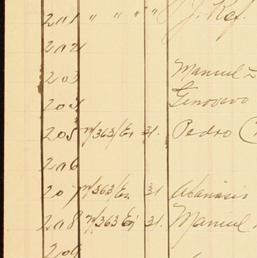 201 " " " " J. Ref.
202
203 Manuel
204 Genovevo
205 n/363/En 31. Pedro
206
207 n/363/En 31 Atanasio
208 n/363 En 31. Manuel
209